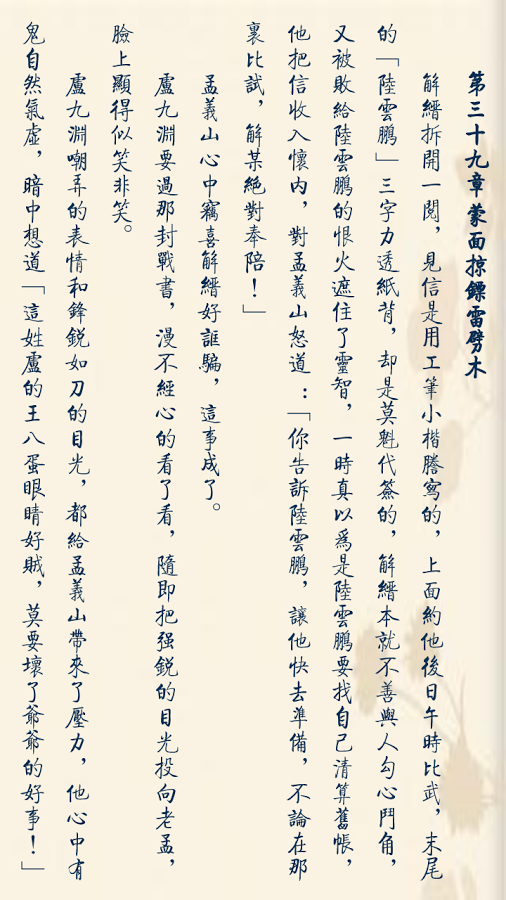 第三十九章 蒙面掠鏢雷劈木
解縉拆開一閱，見信是用工筆小楷謄寫的，上面約他後日午時比武，末尾
的「陸雲鵬」三字力透紙背，却是莫魁代簽的，解縉本就不善與人勾心鬥角，
又被敗給陸雲鵬的恨火遮住了靈智，一時真以爲是陸雲鵬要找自己清算舊帳，
他把信收入懷内，對孟義山怒道：「你告訴陸雲鵬，讓他快去準備，不論在那
裏比試，解某絕對奉陪！」
孟義山心中竊喜解縉好誆騙，這事成了。
盧九淵要過那封戰書，漫不經心的看了看，隨即把强鋭的目光投向老孟，
臉上顯得似笑非笑。
盧九淵嘲弄的表情和鋒鋭如刀的目光，都給孟義山帶來了壓力，他心中有
鬼自然氣虛，暗中想道「這姓盧的王八蛋眼睛好賊，莫要壞了爺爺的好事！」